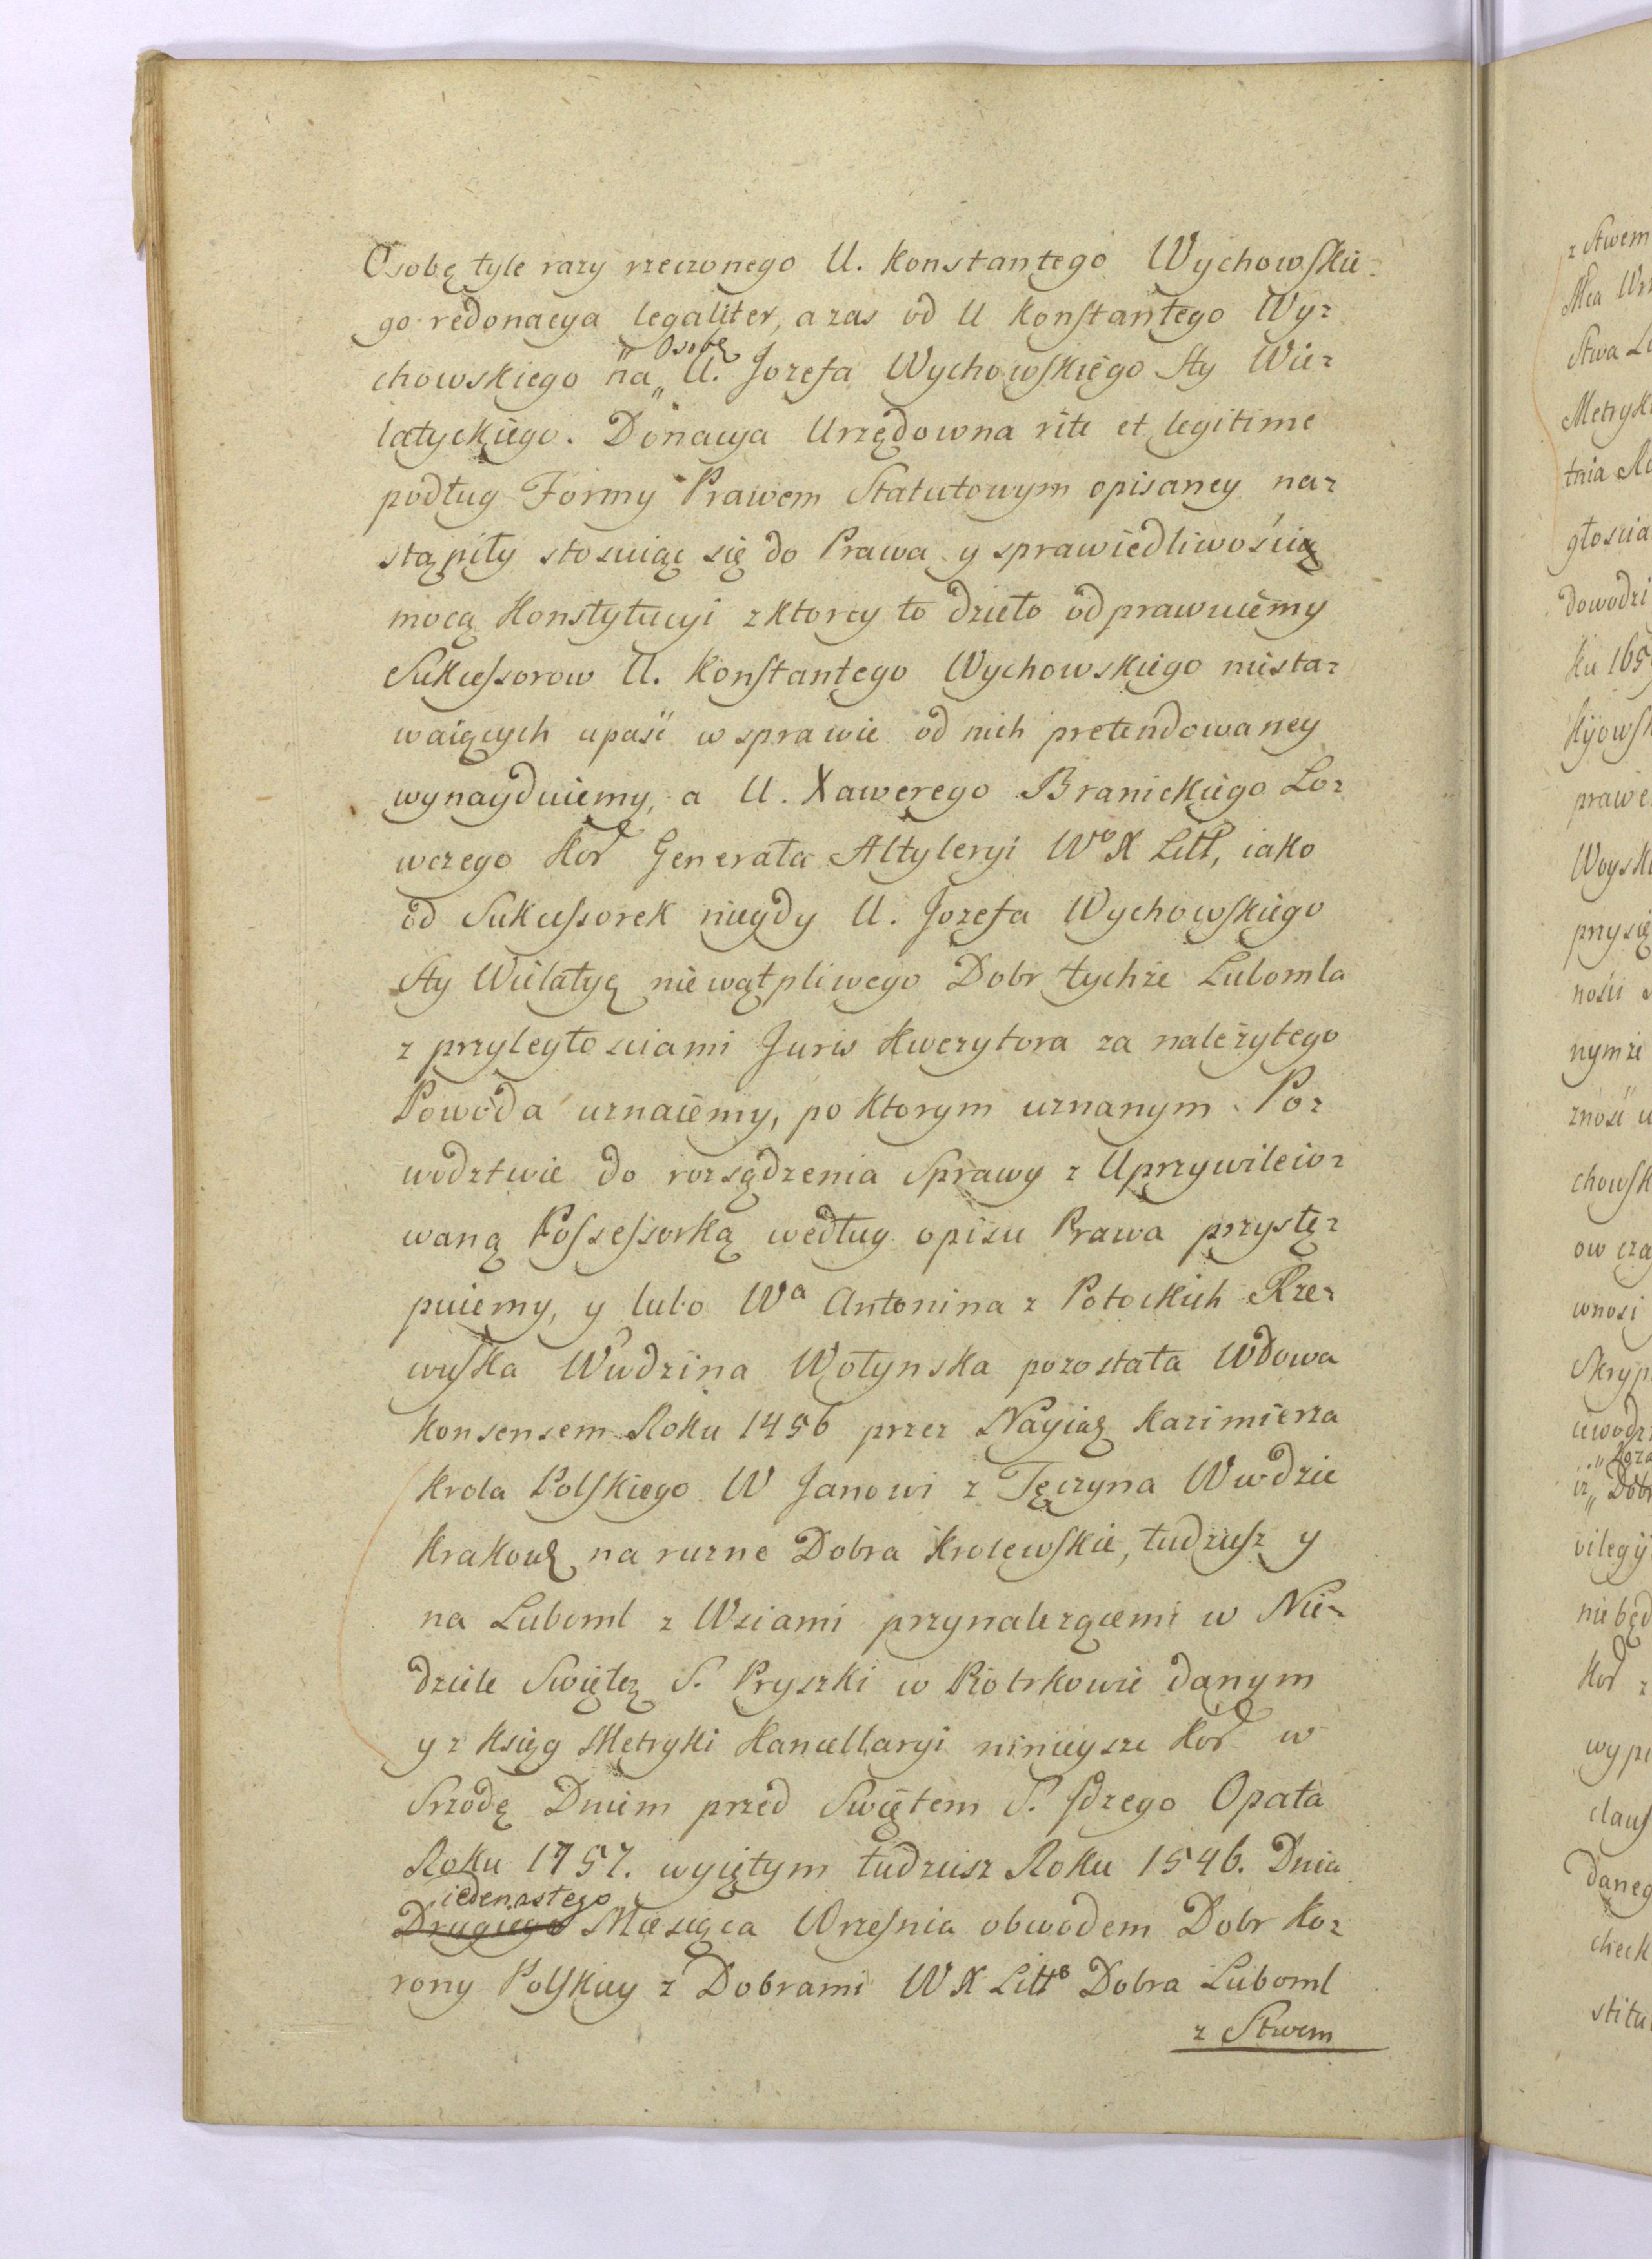 Osobę tyle razy rzeczonego U. Konstantego Wychowskie-
go redonacya legaliter, a zas od U Konstantego Wy-
chowskiego na „ Osobę U. Jozefa Wychowskiego Sty Wie-
latyckiego. Donacya Urzędowna rite et legitime
podług Formy Prawem Statutowym opisaney na-
stąpiły stosuiąc się do Prawa y sprawiedliwością
mocą Konstytucyi z ktorey to dzieło odprawuiemy
Sukcessorow U. Konstantego Wychowskiego niesta-
waiących upaść w sprawie od nich pretendowaney
wynayduiemy, a U. Xawerego Branickiego Ło-
wczego Kor Generała Altyleryi Wo X Litt, iako
od Sukcessorek niegdy U. Jozefa Wychowskiego
Sty Wielatyc niewątpliwego Dobr tychże Lubomla
z przyległosciami Juris Kwezytora za należytego
Powoda uznaiemy, po ktorym uznanym Po-
wodztwie do rozsądzenia Sprawy z Uprzywileio-
waną Possessorką według opisu Prawa przystę-
puiemy, y lubo Wa Antonina z Potockich Rze-
wuska Wwdzina Wołynska pozostała Wdowa
konsensem Roku 1456 przez Nayias Kazimierza
Krola Polskiego W Janowi z Tęczyna Wwdzie
Krakows na ruzne Dobra Krolewskie, tudziesz y
na Luboml z Wsiami przynalezącemi w Nie-
dziele Swiętey S. Pryszki w Piotrkowie danym
y z Ksiąg Metryki Kancellaryi ninieysze Kor w
Srzodę Dniem przed Swiętem S. Idzego Opata
Roku 1757. wyiętym tudziesz Roku 1546. Dnia
iedenastego
Drugiego Miesiąca Wrzesnia obwodem Dobr Ko-
rony Polskiey z Dobrami W X Litt Dobra Luboml
z Stwem
z Stwem
Stwa
Metryk
dowodzi
Woysk
nymze
chowsk
ow
wnosi
vilegij
Kor z